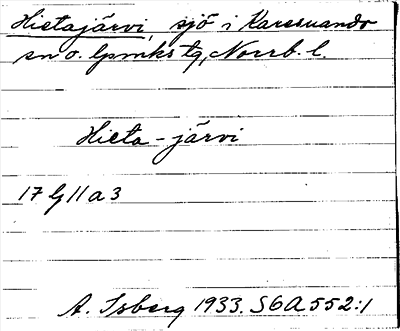 Hietajärvi, sjö i Karesuando
sn o. lpmks tg, Norrb. l.
Hieta-järvi
17 lj 11 a 3
A. Isberg 1933. S6A552:1